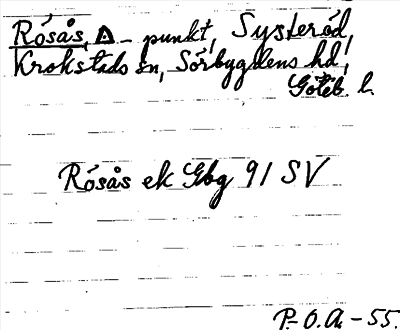 Rósås, Δ-punkt, Systeröd,
Krokstads sn, Sörbygdens hd,
Göteb. l.
Rósås ek Gbg 91 SV
P.O.A. -55.